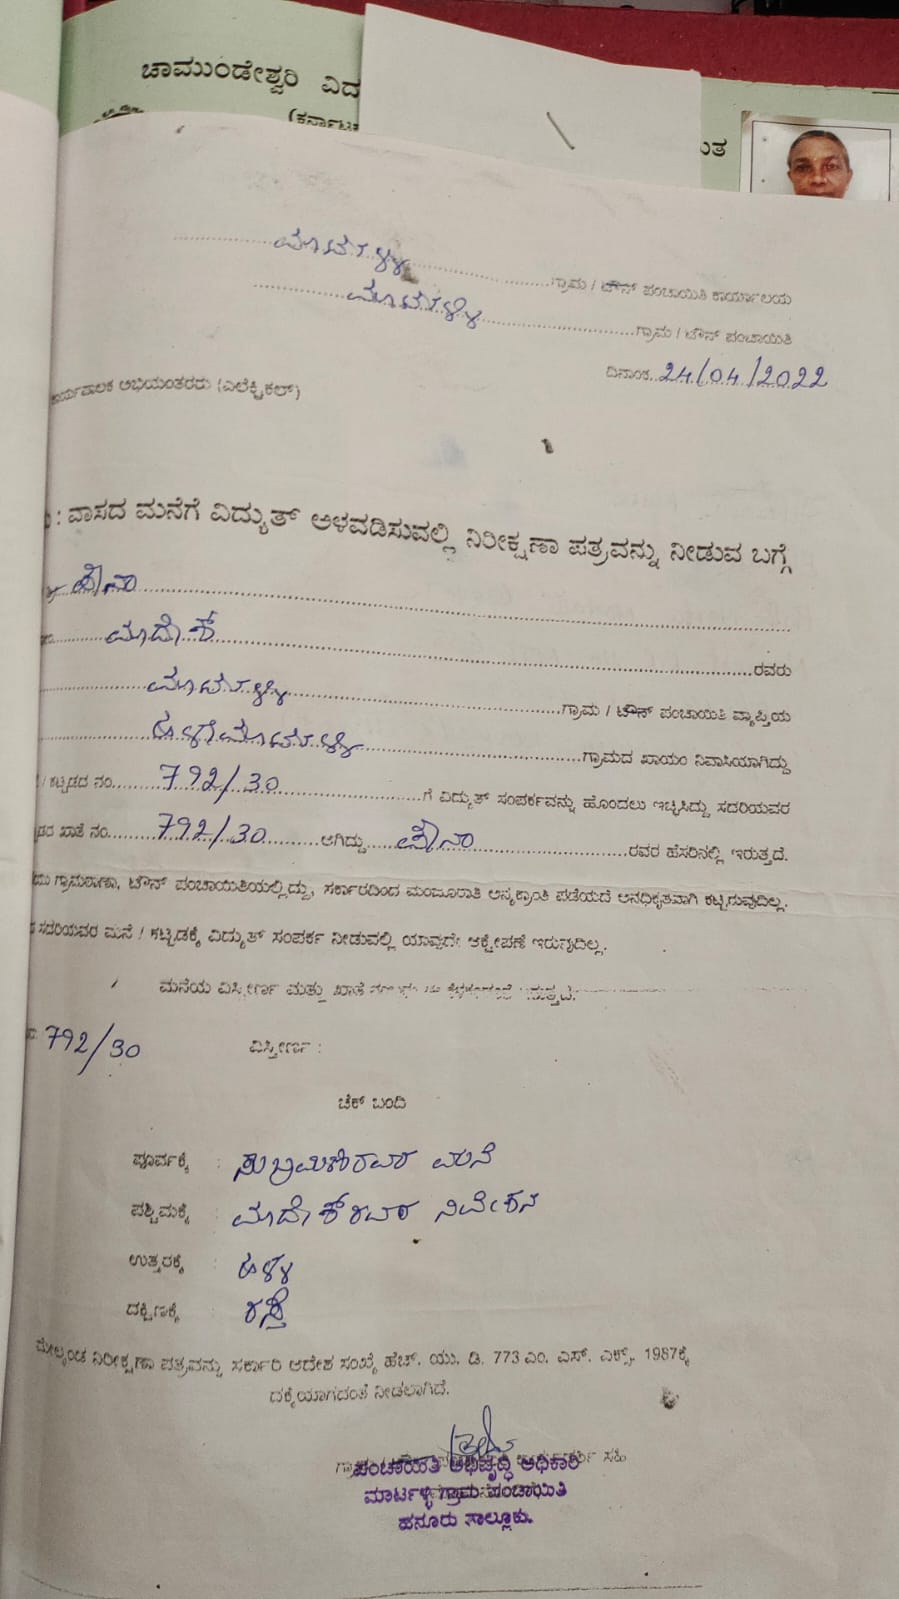 ಚಾಮುಂಡೇಶ್ವರಿ ವಿದ
(ಕರ್ನಾಟಕ
ಮಾರ್ಟಳ್ಳಿ ಗ್ರಾಮ / ಟೌನ್ ಪಂಚಾಯಿತಿ ಕಾರ್ಯಾಲಯ
ಮಾರ್ಟಳ್ಳಿ ಗ್ರಾಮ / ಟೌನ್ ಪಂಚಾಯಿತಿ
ದಿನಾಂಕ 24/04/2022
ಕಾರ್ಯಪಾಲಕ ಅಭಿಯಂತರರು (ಎಲೆಕ್ಟ್ರಿಕಲ್)
: ವಾಸದ ಮನೆಗೆ ವಿದ್ಯುತ್ ಅಳವಡಿಸುವಲ್ಲಿ ನಿರೀಕ್ಷಣಾ ಪತ್ರವನ್ನು ನೀಡುವ ಬಗ್ಗೆ
ಮಾದೇಶ್ ರವರು
ಮಾರ್ಟಳ್ಳಿ ಗ್ರಾಮ / ಟೌನ್ ಪಂಚಾಯಿತಿ ವ್ಯಾಪ್ತಿಯ
ಗ್ರಾಮದ ಖಾಯಂ ನಿವಾಸಿಯಾಗಿದ್ದು
/ ಕಟ್ಟಡದ ನಂ. 792/30 ಗೆ ವಿದ್ಯುತ್ ಸಂಪರ್ಕವನ್ನು ಹೊಂದಲು ಇಚ್ಛಿಸಿದ್ದು ಸದರಿಯವರ
ಖಾತೆ ನಂ. 792/30 ಆಗಿದ್ದು ರವರ ಹೆಸರಿನಲ್ಲಿ ಇರುತ್ತದೆ.
ಗ್ರಾಮಠಾಣಾ, ಟೌನ್ ಪಂಚಾಯಿತಿಯಲ್ಲಿದ್ದು, ಸರ್ಕಾರದಿಂದ ಮಂಜೂರಾತಿ ಅನ್ಯಕ್ರಾಂತಿ ಪಡೆಯದೆ ಅನಧಿಕೃತವಾಗಿ ಕಟ್ಟಿರುವುದಿಲ್ಲ.
ಸದರಿಯವರ ಮನೆ / ಕಟ್ಟಡಕ್ಕೆ ವಿದ್ಯುತ್ ಸಂಪರ್ಕ ನೀಡುವಲ್ಲಿ ಯಾವುದೇ ಆಕ್ಷೇಪಣೆ ಇರುವುದಿಲ್ಲ.
ಮನೆಯ ವಿಸ್ತೀರ್ಣ ಮತ್ತು ಖಾತೆ
792/30 ವಿಸ್ತೀರ್ಣ :
ಚೆಕ್ ಬಂದಿ
ಪೂರ್ವಕ್ಕೆ : ಸುಬ್ರಮಣಿರವರ ಮನೆ
ಪಶ್ಚಿಮಕ್ಕೆ : ಮಾದೇಶ್‌ರವರ ನಿವೇಶನ
ಉತ್ತರಕ್ಕೆ : ಹಳ್ಳ
ದಕ್ಷಿಣಕ್ಕೆ : ರಸ್ತೆ
ಮೇಲ್ಕಂಡ ನಿರೀಕ್ಷಣಾ ಪತ್ರವನ್ನು ಸರ್ಕಾರಿ ಆದೇಶ ಸಂಖ್ಯೆ ಹೆಚ್. ಯು. ಡಿ. 773 ಎಂ. ಎಸ್. ಎಕ್ಸ್. 1987ಕ್ಕೆ
ದಕ್ಕೆಯಾಗದಂತೆ ನೀಡಲಾಗಿದೆ.
ಪಂಚಾಯಿತಿ ಅಭಿವೃದ್ಧಿ ಅಧಿಕಾರಿ
ಮಾರ್ಟಳ್ಳಿ ಗ್ರಾಮ ಪಂಚಾಯಿತಿ
ಹನೂರು ತಾಲ್ಲೂಕು.